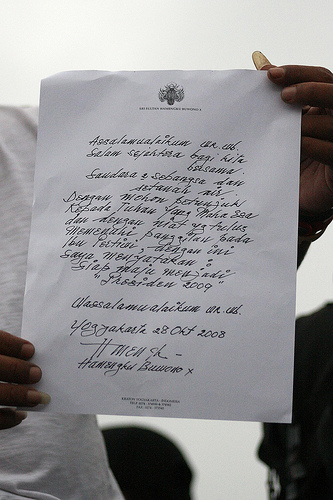 SRI SULTAN HAMENGKU BUWONO X
Assalamualaikum wr. wb.
Salam sejahtera bagi kita
bersama.
Saudara2 sebangsa dan
setanah air.
Dengan mohon petunjuk
kepada Tuhan Yang Maha Esa
dan dengan niat yg tulus
Memenuhi panggilan pada
Ibu Pertiwi, dengan ini
Saya menyatakan :
"Siap maju menjadi
"Presiden 2009"
Wassalamualaikum wr. wb.
Yogyakarta 28 Okt 2008
Hamengku Buwono X
KRATON YOGYAKARTA - INDONESIA